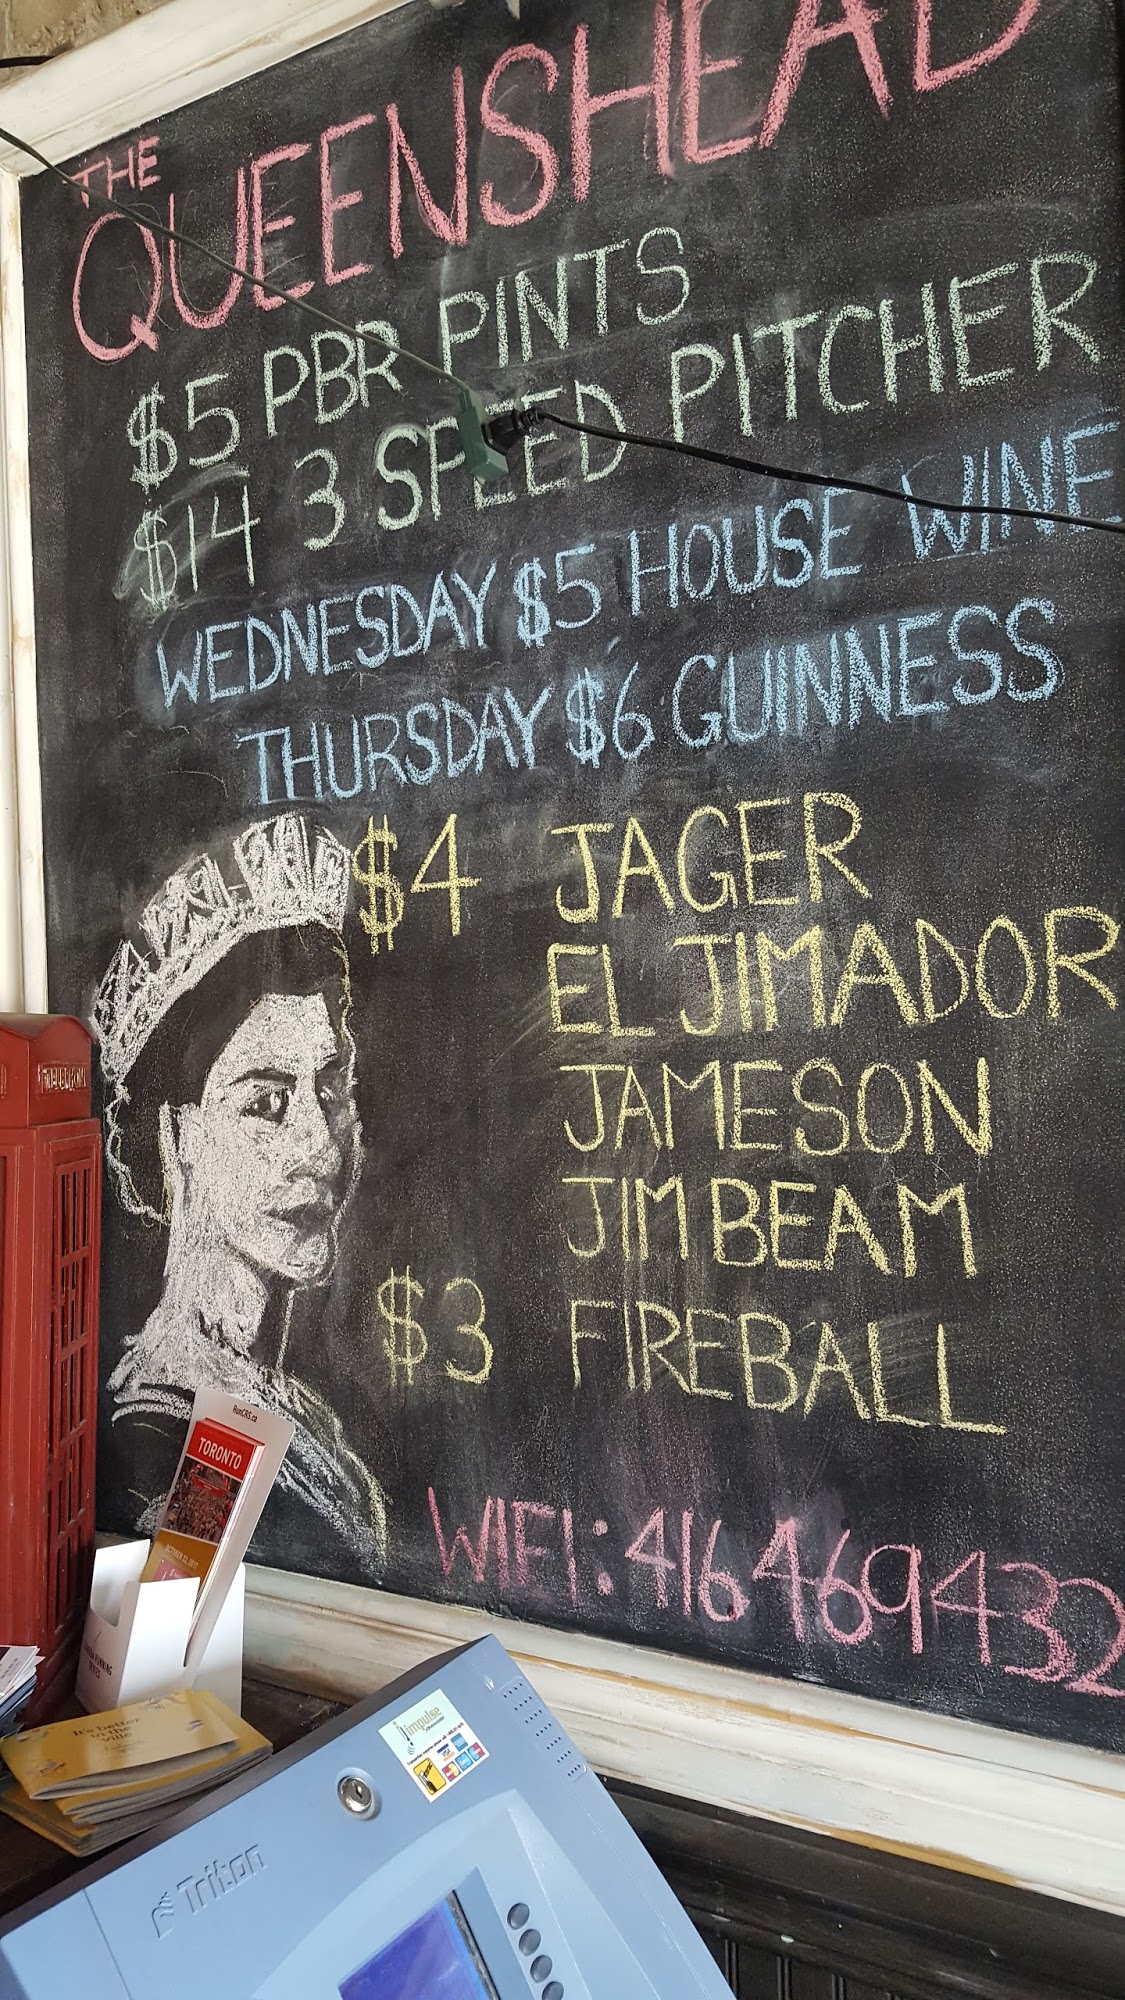 THE
QUEENSHEAD
$5 PBR PINTS
$14 3 SPEED PITCHER
WEDNESDAY $5 HOUSE WINE
THURSDAY $6 GUINNESS
$4 JAGER
EL JIMADOR
JAMESON
JIM BEAM
$3 FIREBALL
WIFI: 416469432
TELEPHONE
RunCRS.ca
TORONTO
OCTOBER 22, 2017
It's better
in the
ville
impulse
Triton